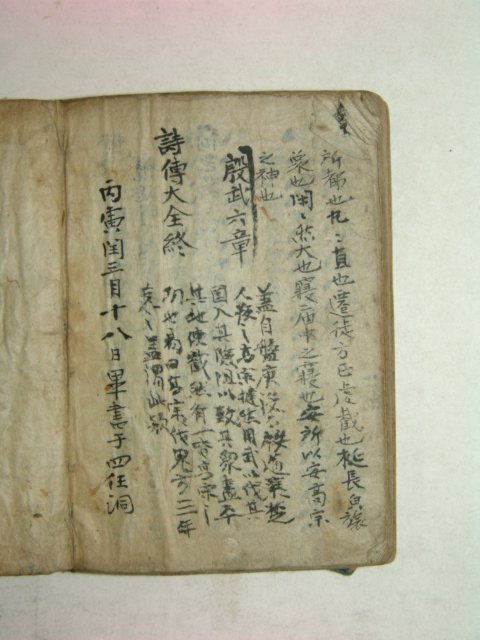 所都也丸〻直也遷徙方正虔截也梴長皃旅
衆也閑〻然大也寢庙中之寢也安所以安高宗
之神也
殷武六章
蓋自盤庚没而殷道衰楚
人叛之高宗撻然用武以伐其
国入其險阻以致其衆盡平
其地使截然有一皆高宗之
功也易曰高宗伐鬼方三年
克之盖謂此歟
詩傳大全終
丙寅閏三月十八日畢書于四任洞